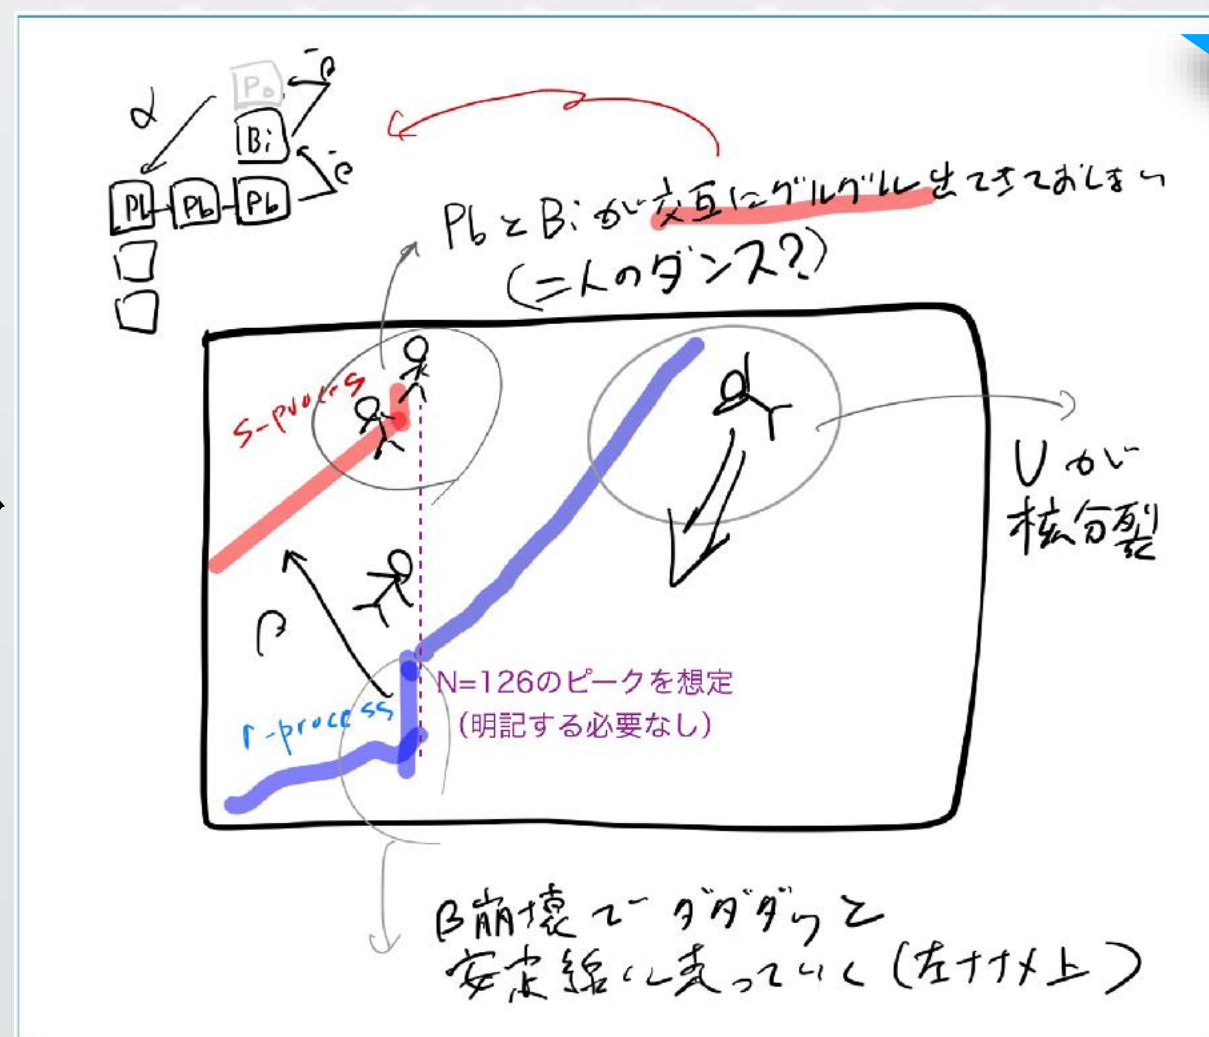 α
Po
β⁻
Bi
β⁻
Pb Pb Pb
PbとBiが交互にグルグル出てきておしまい
(二人のダンス?)
s-process
Uが
核分裂
β
N=126のピークを想定
(明記する必要なし)
r-process
β崩壊でダダダッと
安定線に走っていく(左ナナメ上)